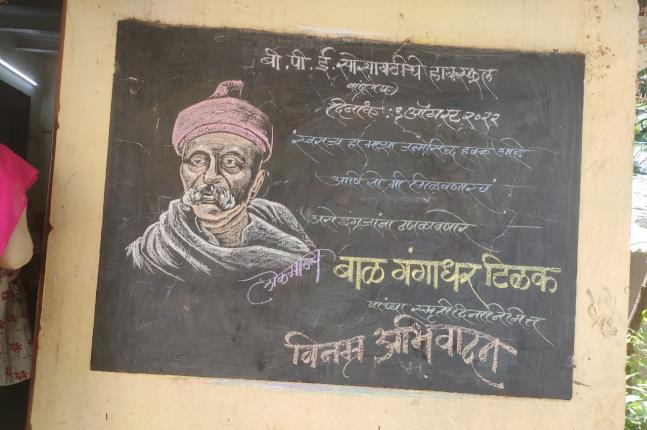 बी.पी.ई.सोसायटीचे हायस्कूल
दिनांक : १ ऑगस्ट २०२२
स्वराज्य हा माझा जन्मसिद्ध हक्क आहे
आणि तो मी मिळवणारचं
असे इंग्रजांना ठणकावणारे
लोकमान्य बाळ गंगाधर टिळक
यांच्या स्मृतीदिनानिमित्त
विनम्र अभिवादन